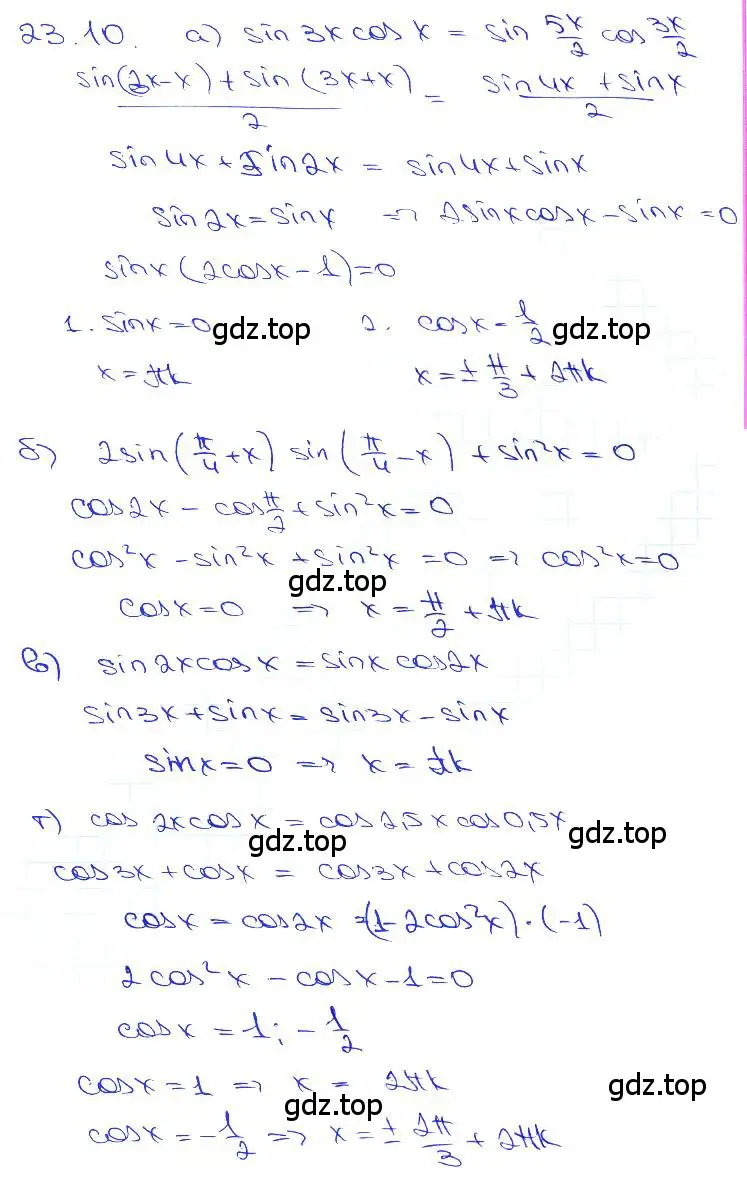 23.10. а) sin 3x cos x = sin 5x/2 cos 3x/2
(sin(3x-x) + sin(3x+x))/2 = (sin 4x + sin x)/2
sin 4x + sin 2x = sin 4x + sin x
sin 2x = sin x ⇒ 2 sin x cos x - sin x = 0
sin x (2 cos x - 1) = 0
1. sin x = 0 gdz.top 2. cos x = 1/2 gdz.top
x = πk x = ± π/3 + 2πk
б) 2 sin(π/4 + x) sin(π/4 - x) + sin²x = 0
cos 2x - cos π/2 + sin²x = 0
cos²x - sin²x + sin²x = 0 ⇒ cos²x = 0
gdz.top
cos x = 0 ⇒ x = π/2 + πk
в) sin 2x cos x = sin x cos 2x
sin 3x + sin x = sin 3x - sin x
sin x = 0 ⇒ x = πk
г) cos 2x cos x = cos 2,5x cos 0,5x
gdz.top gdz.top
cos 3x + cos x = cos 3x + cos 2x
cos x = cos 2x = (1 - 2cos²x)·(-1)
2 cos²x - cos x - 1 = 0
cos x = 1; - 1/2
cos x = 1 ⇒ x = 2πk
gdz.top gdz.top
cos x = - 1/2 ⇒ x = ± 2π/3 + 2πk